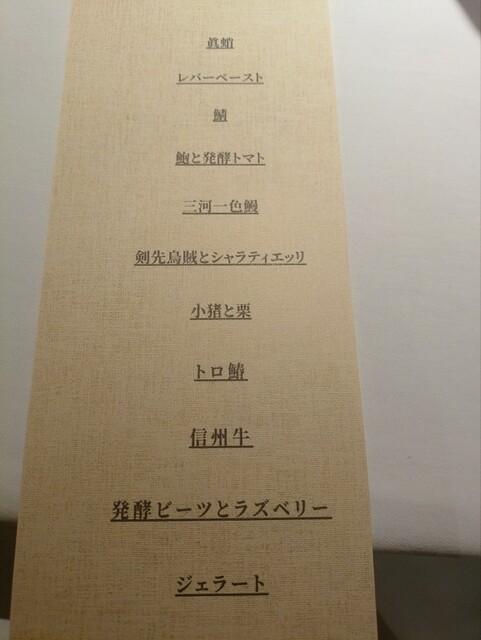 眞蛸
レバーペースト
鯖
鮑と発酵トマト
三河一色鰻
剣先烏賊とシャラティエッリ
小猪と栗
トロ鰆
信州牛
発酵ビーツとラズベリー
ジェラート